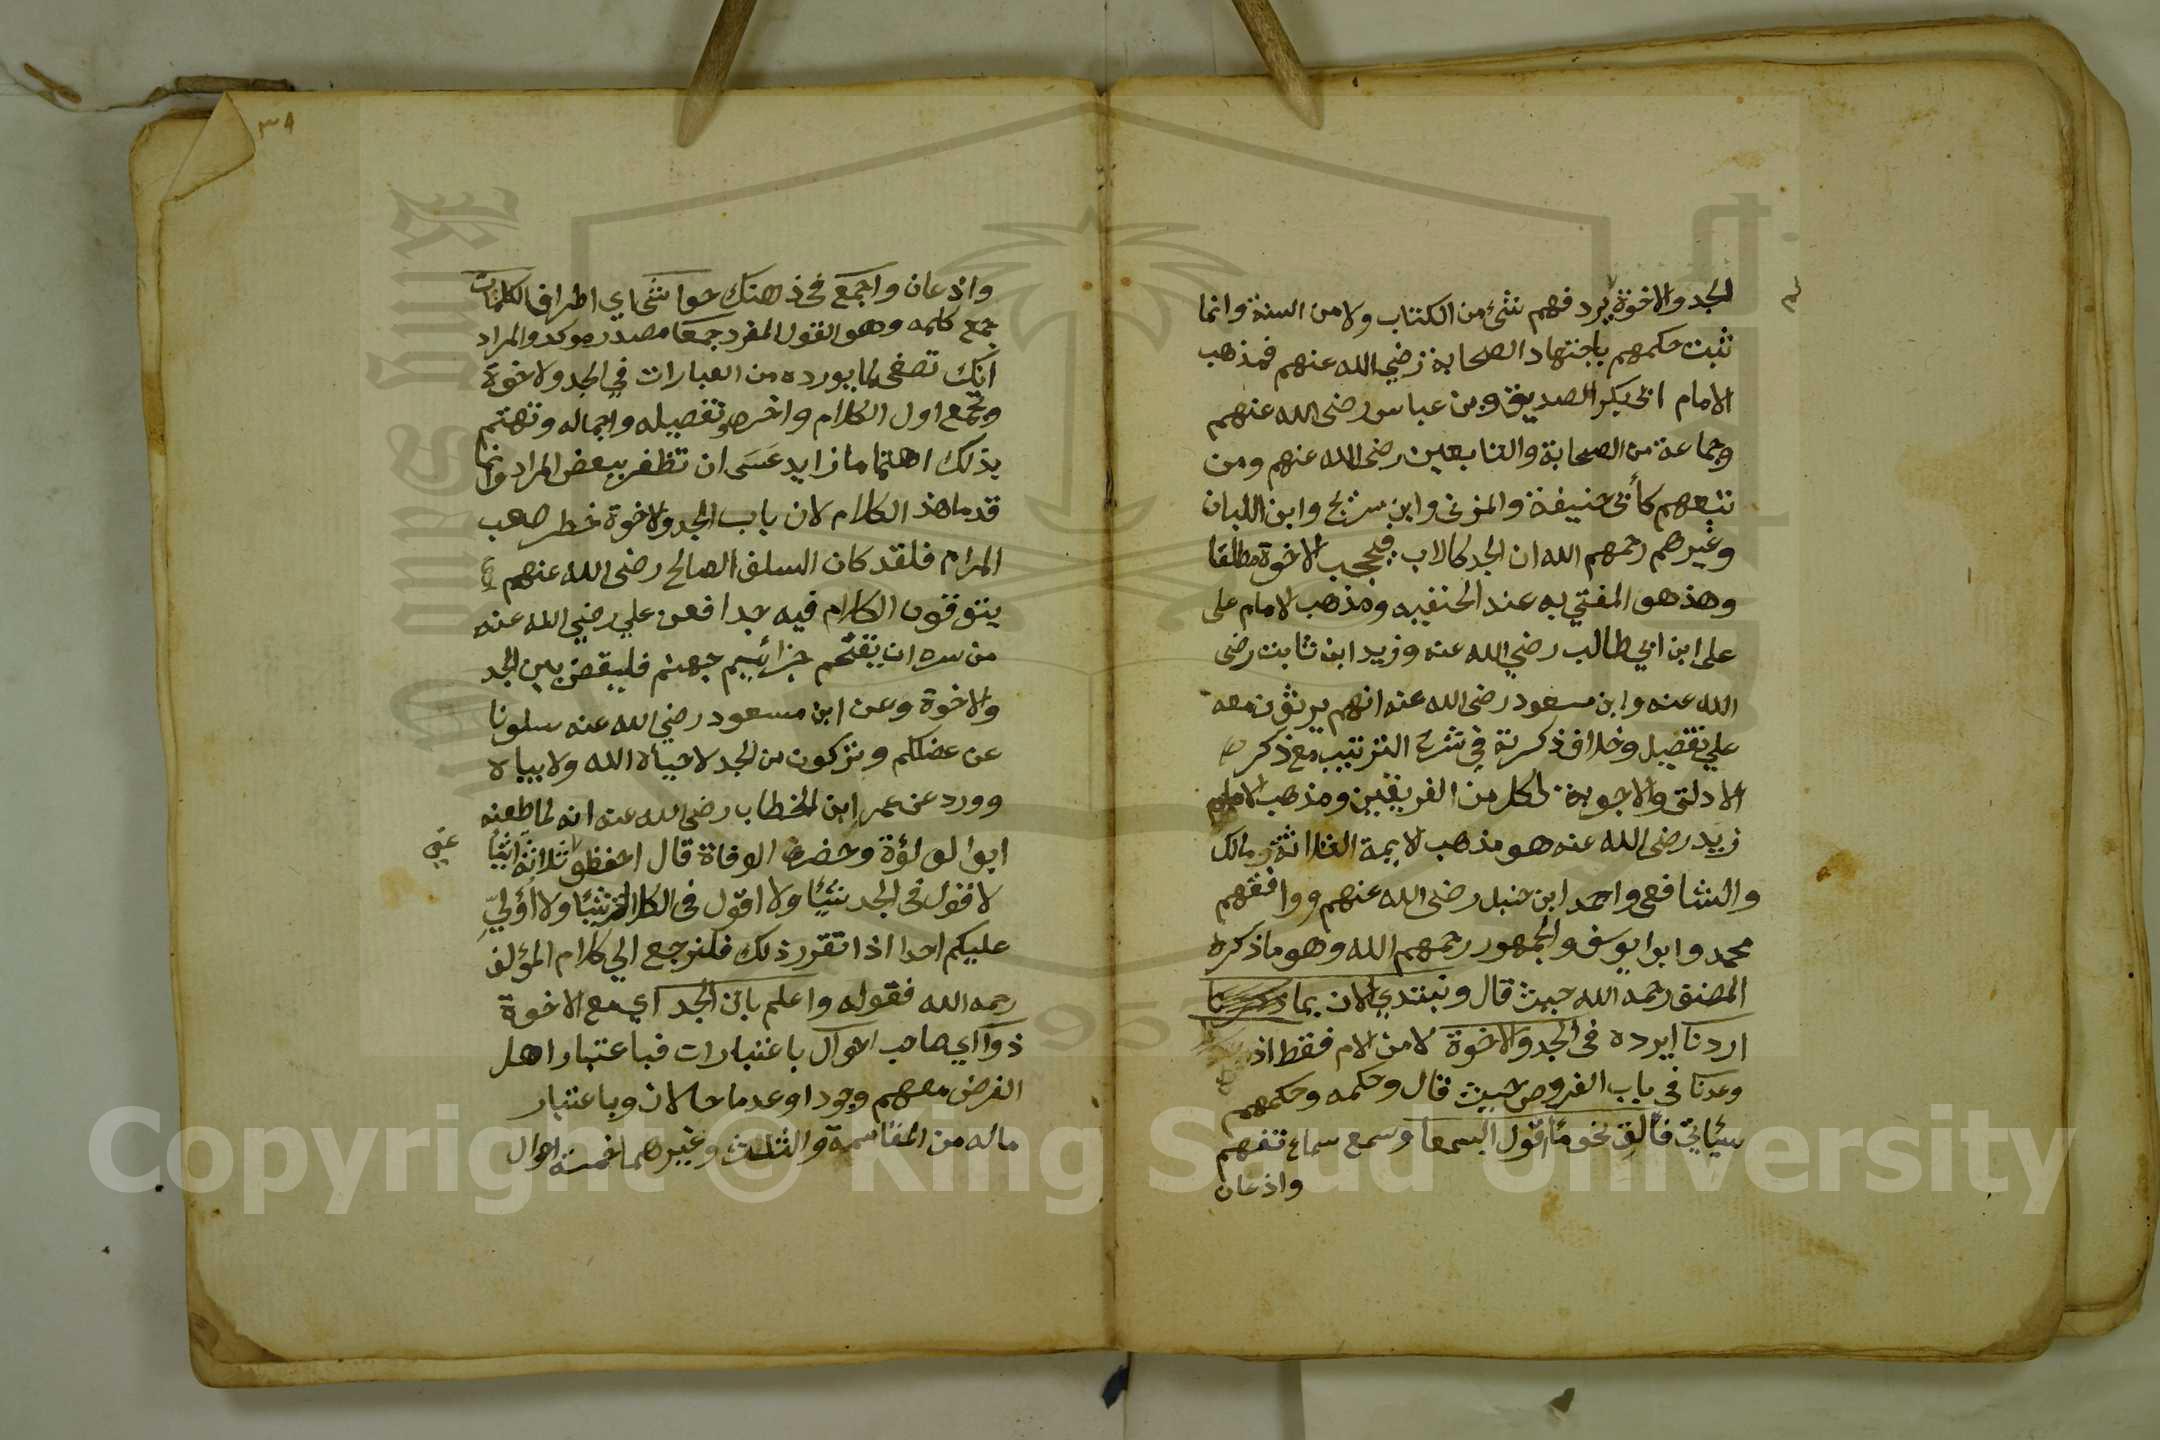 الجد والاخوة يرد فهم شئ من الكتاب ولا من السنة وانما
لم
ثبت حكمهم باجتهاد الصحابة رضي الله عنهم فمذهب
الامام ابي بكر الصديق وبن عباس رضى الله عنهم
وجماعة من الصحابة والتابعين رضى الله عنهم ومن
تبعهم كأبى حنيفة والمزنى وابن سريج وابن اللبان
وغيرهم رحمهم الله ان الجد كالاب فيحجب الاخوة مطلقا
وهذ هو المفتي به عند الحنفيه ومذهب الامام على
على ابن ابي طالب رضي الله عنه وزيد ابن ثابت رضى
الله عنه وابن مسعود رضى الله عنه انهم يرثون معه
علي تفصيل وخلاف ذكرته في شرح الترتيب مع ذكر
الادلة والاجوبة لكل من الفريقين ومذهب الامام
زيد رضى الله عنه هو مذهب الايمة الثلاثة مالك
والشافعى واحمد ابن حنبل رضى الله عنهم ووافقهم
محمد وابوا يوسف والجمهور رحمهم الله وهو ماذكره
المصنف رحمه الله حيث قال ونبتدي الان بما
اردنا ايرده فى الجد والاخوة لا من الام فقط اذ
وعدنا فى باب الفروض حيث قال وحكمه وحكمهم
سيأتي فألق نحو ما اقول السمعا وسمع سماع تفهم
واذعان
٣٨
واذعان واجمع فى ذهنك حواشى اي اطراف الكلمات
جمع كلمه وهو القول المفرد جمعا مصدر موكد والمراد
انك تصغى لما يورده من العبارات في الجد ولاخوة
وتجمع اول الكلام واخره وتفصيله واجماله وتهتم
بذلك اهتماما زايد عسى ان تظفر ببعض المراد وانما
قدم هذ الكلام لان باب الجد ولاخوة خطر صعب
المرام فلقد كان السلف الصالح رضى الله عنهم
يتوقون الكلام فيه جدا فعن علي رضي الله عنه
من سره ان يقتحم جراثيم جهنم فليقض بين الجد
والاخوة وعن ابن مسعود رضي الله عنه سلونا
عن عضلكم وتركون من الجد لاحياه الله ولا بياه
وورد عن عمر ابن الخطاب رضى الله عنه انه لما طعنه
ابوا لؤلؤة وحضرته الوفاة قال احفظوا ثلاثة اشيا
عني
لاقول فى الجد شيئا ولا اقول فى الكلالة شيئا ولا أولي
عليكم احدا اذا تقرر ذلك فلنرجع الي كلام المؤلف
رحمه الله فقوله واعلم بان الجد اي مع الاخوة
ذوا اي صاحب احوال باعتبارات فباعتبار اهل
الفرض معهم وجودا وعدما حالان وباعتبار
ماله من المقاسمة والثلث وغيرهما خمسة احوال
Copyright © King Saud University